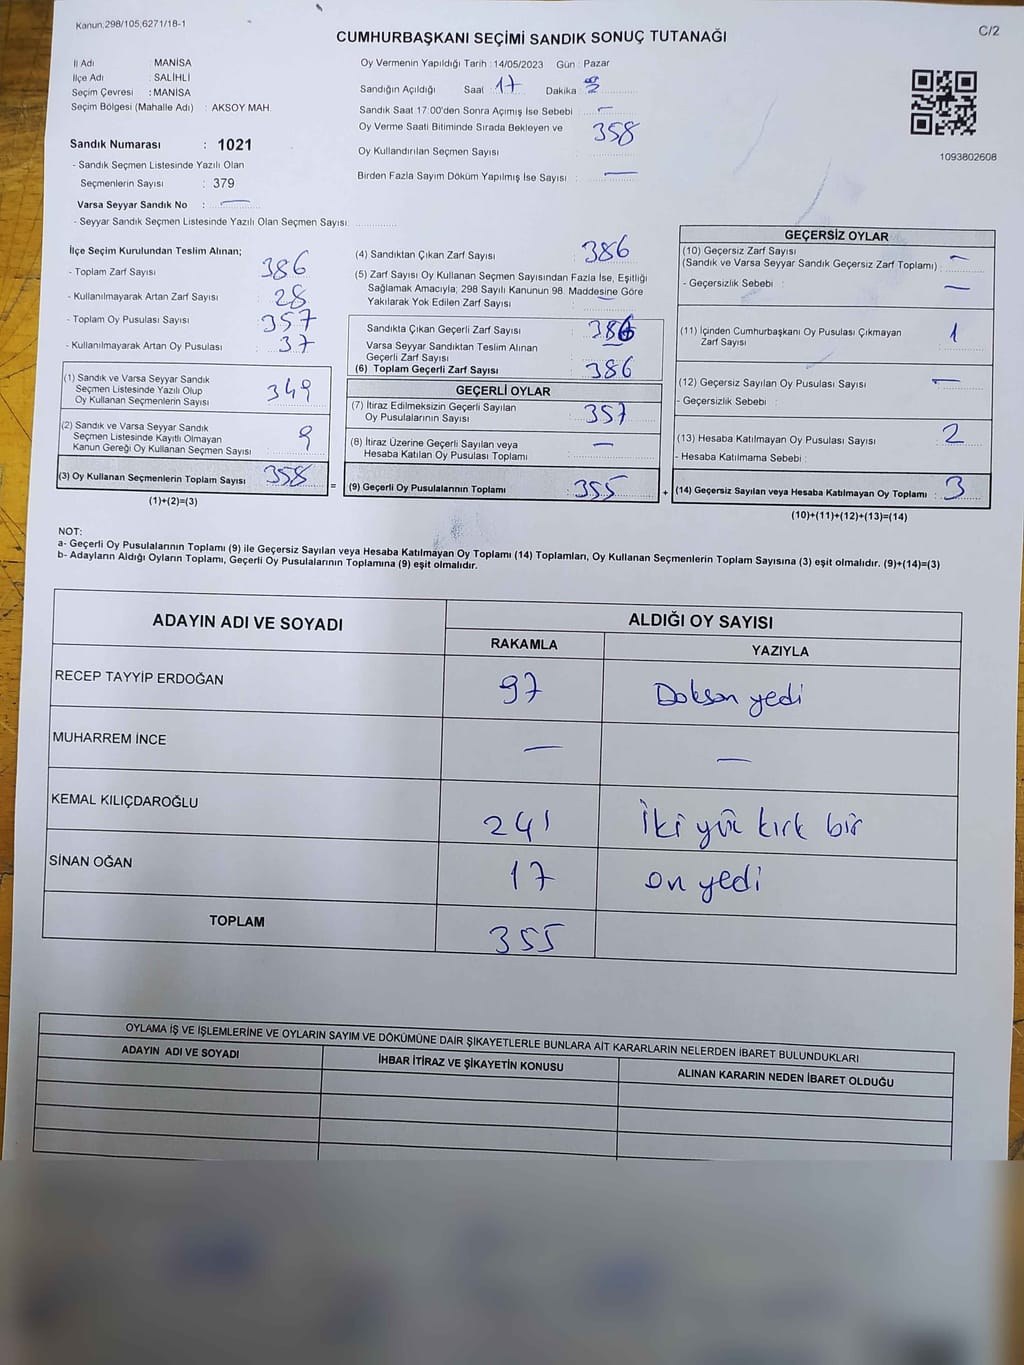 Kanun;298/105,6271/18-1
C/2
CUMHURBAŞKANI SEÇİMİ SANDIK SONUÇ TUTANAĞI
İl Adı : MANİSA
İlçe Adı : SALİHLİ
Seçim Çevresi : MANİSA
Seçim Bölgesi (Mahalle Adı) : AKSOY MAH.
Oy Vermenin Yapıldığı Tarih : 14/05/2023 Gün : Pazar
Sandığın Açıldığı Saat : 17 Dakika :
Sandık Saat 17:00'den Sonra Açımış İse Sebebi : —
Oy Verme Saati Bitiminde Sırada Bekleyen ve
Oy Kullandırılan Seçmen Sayısı : 358
Birden Fazla Sayım Döküm Yapılmış İse Sayısı : —
1093802608
Sandık Numarası : 1021
- Sandık Seçmen Listesinde Yazılı Olan
Seçmenlerin Sayısı : 379
Varsa Seyyar Sandık No : —
- Seyyar Sandık Seçmen Listesinde Yazılı Olan Seçmen Sayısı:
İlçe Seçim Kurulundan Teslim Alınan;
- Toplam Zarf Sayısı : 386
- Kullanılmayarak Artan Zarf Sayısı : 28
- Toplam Oy Pusulası Sayısı : 357
- Kullanılmayarak Artan Oy Pusulası : 37
(1) Sandık ve Varsa Seyyar Sandık
Seçmen Listesinde Yazılı Olup
Oy Kullanan Seçmenlerin Sayısı : 349
(2) Sandık ve Varsa Seyyar Sandık
Seçmen Listesinde Kayıtlı Olmayan
Kanun Gereği Oy Kullanan Seçmen Sayısı : 9
(3) Oy Kullanan Seçmenlerin Toplam Sayısı : 358
(1)+(2)=(3)
(4) Sandıktan Çıkan Zarf Sayısı : 386
(5) Zarf Sayısı Oy Kullanan Seçmen Sayısından Fazla İse, Eşitliği
Sağlamak Amacıyla; 298 Sayılı Kanunun 98. Maddesine Göre
Yakılarak Yok Edilen Zarf Sayısı : —
Sandıkta Çıkan Geçerli Zarf Sayısı : 386
Varsa Seyyar Sandıktan Teslim Alınan
Geçerli Zarf Sayısı : —
(6) Toplam Geçerli Zarf Sayısı : 386
GEÇERLİ OYLAR
(7) İtiraz Edilmeksizin Geçerli Sayılan
Oy Pusulalarının Sayısı : 357
(8) İtiraz Üzerine Geçerli Sayılan veya
Hesaba Katılan Oy Pusulası Toplamı : —
= (9) Geçerli Oy Pusulalarının Toplamı : 355
GEÇERSİZ OYLAR
(10) Geçersiz Zarf Sayısı
(Sandık ve Varsa Seyyar Sandık Geçersiz Zarf Toplamı) : —
- Geçersizlik Sebebi : —
(11) İçinden Cumhurbaşkanı Oy Pusulası Çıkmayan
Zarf Sayısı : 1
(12) Geçersiz Sayılan Oy Pusulası Sayısı : —
- Geçersizlik Sebebi :
(13) Hesaba Katılmayan Oy Pusulası Sayısı : 2
- Hesaba Katılmama Sebebi :
+ (14) Geçersiz Sayılan veya Hesaba Katılmayan Oy Toplamı : 3
(10)+(11)+(12)+(13)=(14)
NOT:
a- Geçerli Oy Pusulalarının Toplamı (9) ile Geçersiz Sayılan veya Hesaba Katılmayan Oy Toplamı (14) Toplamları, Oy Kullanan Seçmenlerin Toplam Sayısına (3) eşit olmalıdır. (9)+(14)=(3)
b- Adayların Aldığı Oyların Toplamı, Geçerli Oy Pusulalarının Toplamına (9) eşit olmalıdır.
ADAYIN ADI VE SOYADI ALDIĞI OY SAYISI
RAKAMLA YAZIYLA
RECEP TAYYİP ERDOĞAN 97 Doksan yedi
MUHARREM İNCE — —
KEMAL KILIÇDAROĞLU 241 İki yüz kırk bir
SİNAN OĞAN 17 on yedi
TOPLAM 355
OYLAMA İŞ VE İŞLEMLERİNE VE OYLARIN SAYIM VE DÖKÜMÜNE DAİR ŞİKAYETLERLE BUNLARA AİT KARARLARIN NELERDEN İBARET BULUNDUKLARI
ADAYIN ADI VE SOYADI İHBAR İTİRAZ VE ŞİKAYETİN KONUSU ALINAN KARARIN NEDEN İBARET OLDUĞU